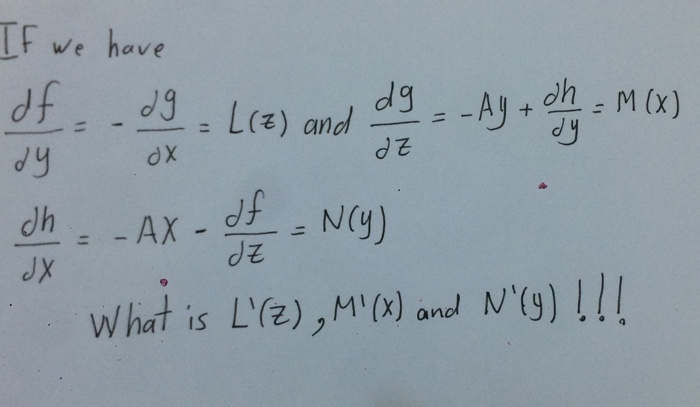 If we have
∂f/∂y = - ∂g/∂x = L(z) and ∂g/∂z = -Ay + ∂h/∂y = M(x)
∂h/∂x = -AX - ∂f/∂z = N(y)
What is L'(z), M'(x) and N'(y)!!!